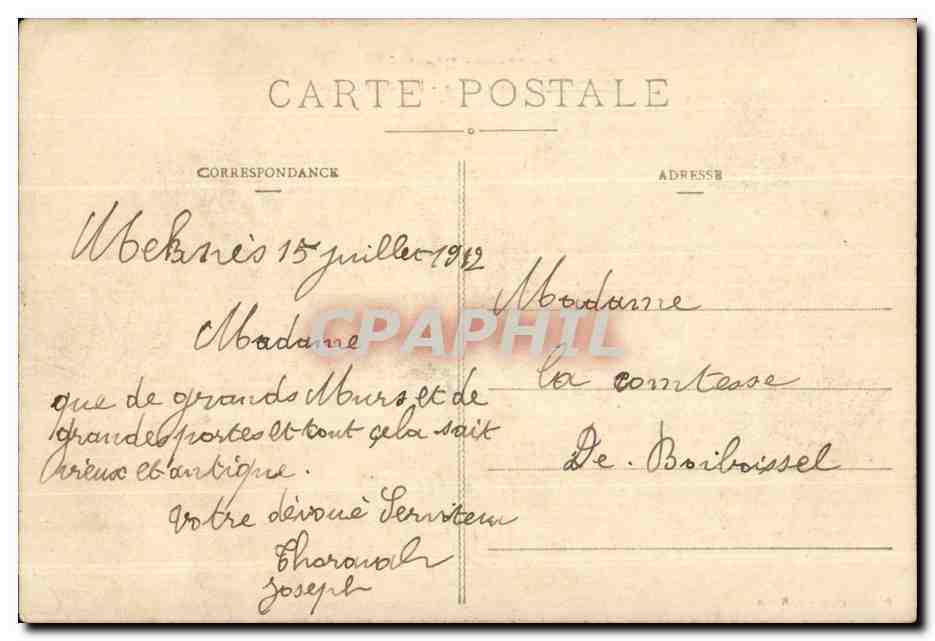 CARTE POSTALE
CORRESPONDANCE
ADRESSE
Meknès 15 juillet 1912
Madame
que de grands Murs et de
grandes portes et tout çela sait
vieux et antique.
Votre dévoué Serviteur
Joseph
Madame
la comtesse
De. Boiboissel
CPAPHIL